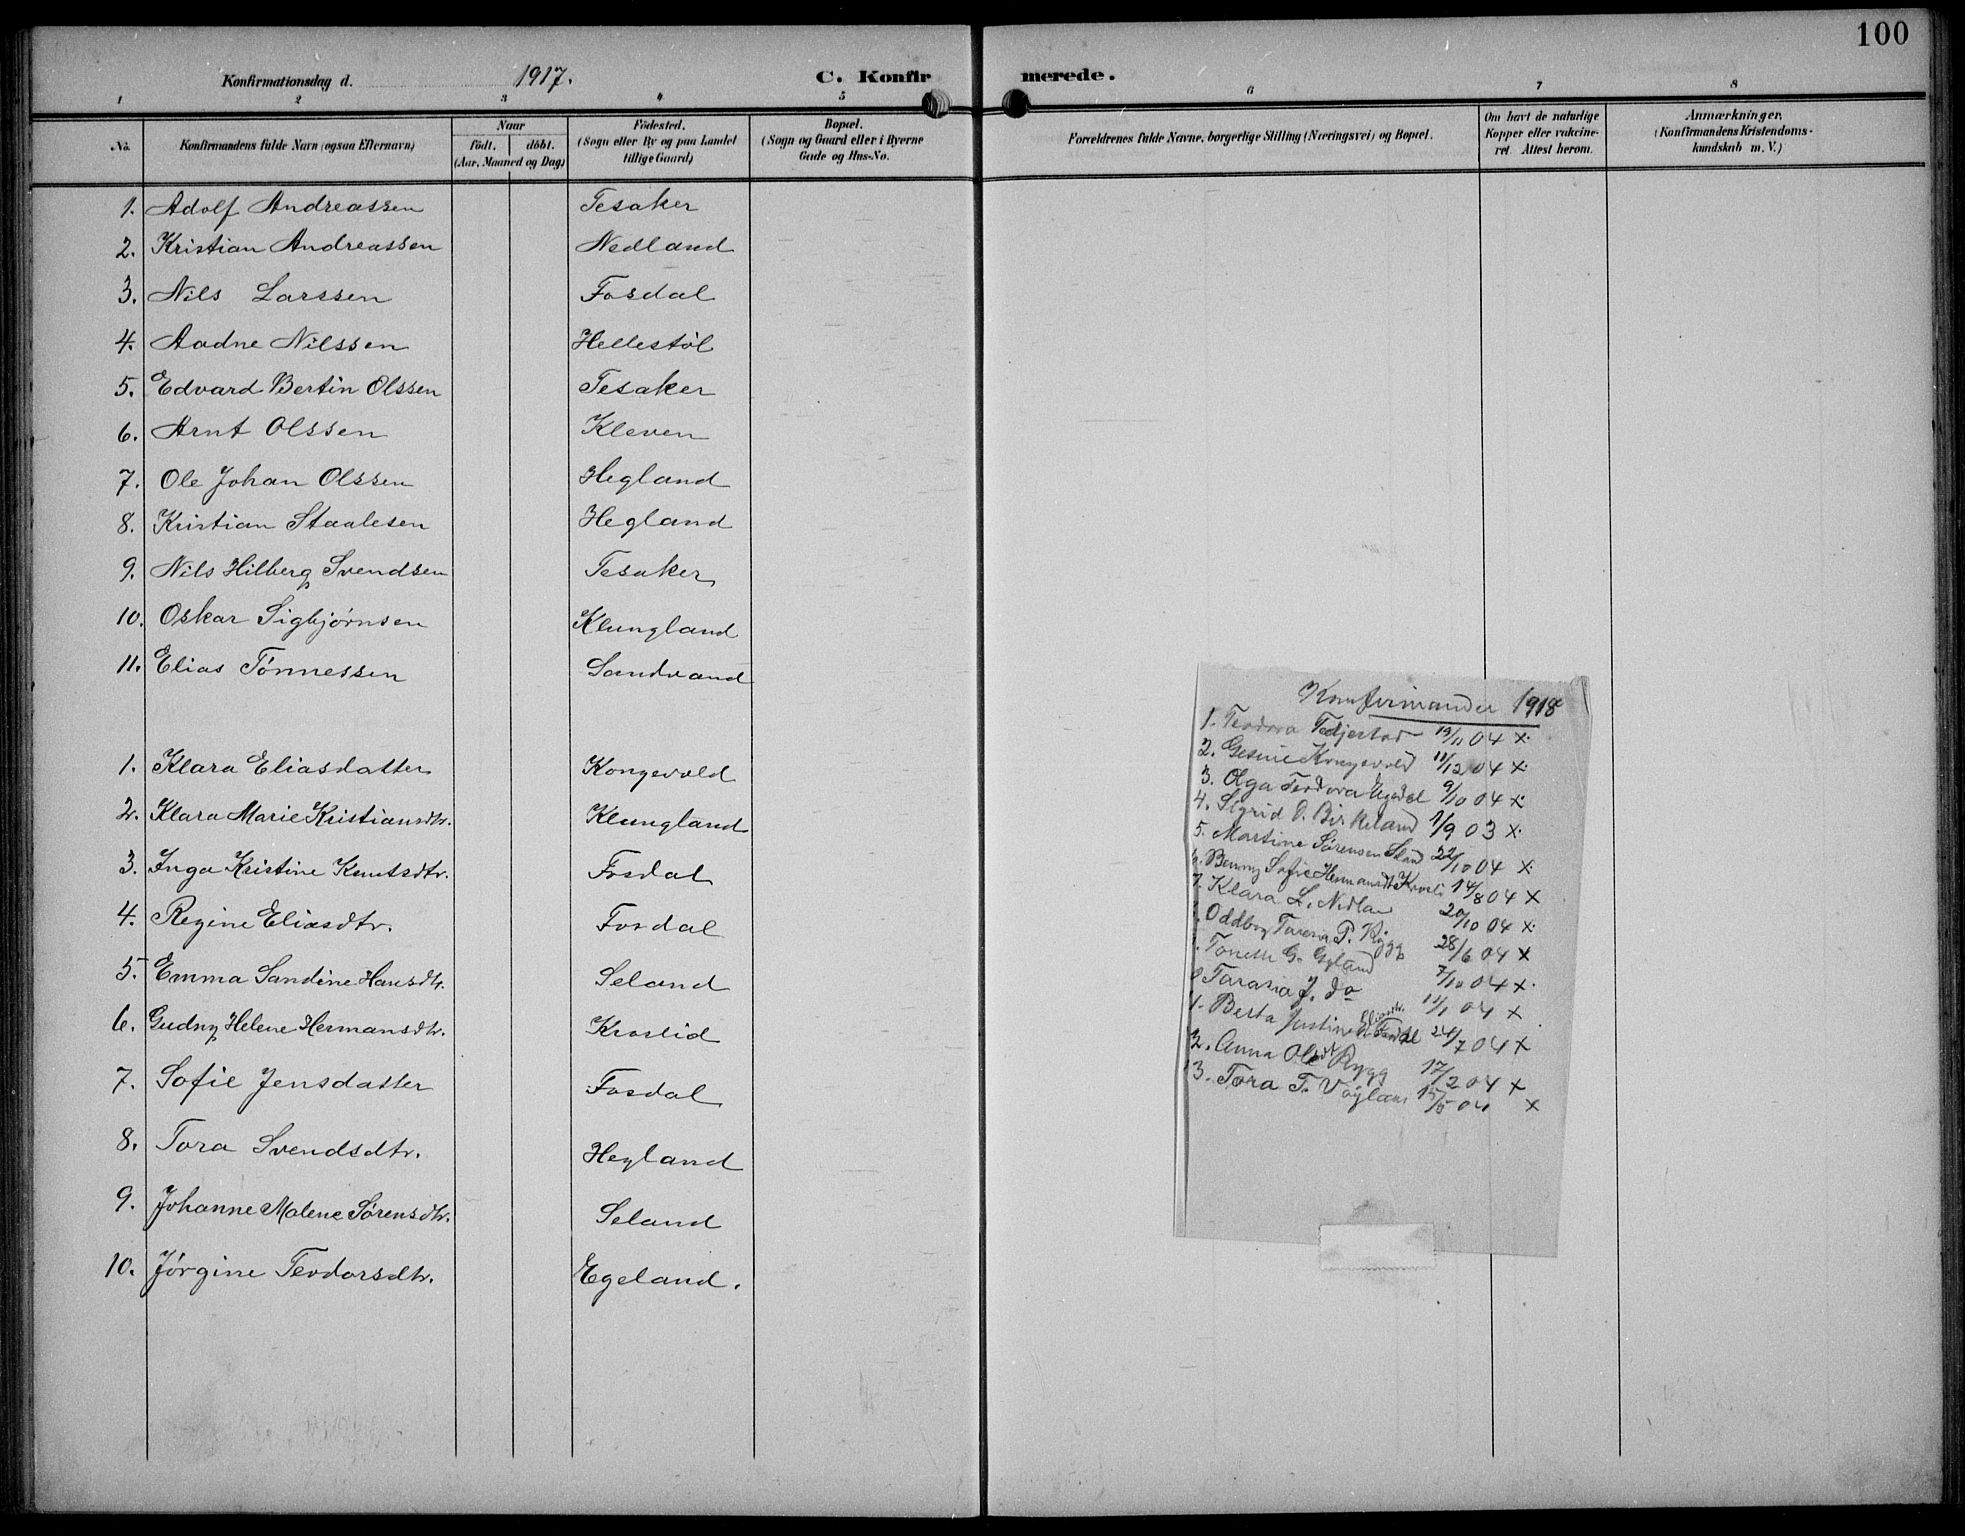 100
Konfirmationsdag d. 1917. C. Konfirmerede.
1 2 3 4 5 6 7 8
No. Konfirmandens fulde Navn (ogsaa Efternavn) Naar født. døbt. (Aar, Maaned og Dag) Fødested. (Sogn eller By og paa Landet tillige Gaard) Bopæl. (Sogn og Gaard eller i Byerne Gade og Hus-No. Forældrenes fulde Navne, borgerlige Stilling (Næringsvei) og Bopæl. Om havt de naturlige Kopper eller vakcineret. Attest herom. Anmærkninger. (Konfirmandens Kristendomskundskab m. V.)
1. Adolf Andreassen Tesaker
2. Kristian Andreassen Nedland
3. Nils Larssen Fosdal
4. Aadne Nilssen Hellestøl
5. Edvard Bertin Olssen Tesaker
6. Arnt Olssen Kleven
7. Ole Johan Olssen Hegland
8. Kristian Staalesen Hegland
9. Nils Hilberg Svendsen Tesaker
10. Oskar Sigbjørnsen Klungland
11. Elias Tønnessen Sandvand
1. Klara Eliasdatter Kongevold
2. Klara Marie Kristiansdtr. Klungland
3. Inga Kristine Knutsdtr. Fosdal
4. Regine Eliasdtr. Fosdal
5. Emma Sandine Hansdtr. Seland
6. Gudny Helene Hermansdtr. Kroslid
7. Sofie Jensdatter Fosdal
8. Tora Svendsdtr. Hegland
9. Johanne Malene Sørensdtr. Seland
10. Jørgine Teodorsdtr. Egeland.
Konfirmander 1918
1. Teodora Tedjestad 13/11 04 x
2. Gesine Kongevold 11/12 04 x
3. Olga Teodora 9/10 04 x
4. Sigrid O. Birkeland 1/9 03 x
5. Martine Sørensen 22/10 04 x
6. Benny Sofie Hermansdt Krosli 14/8 04 x
7. Klara L. Nedla 20/10 04 x
Oddbog P. Rygg 28/6 04 x
Tonette G. Egeland 7/10 04 x
J. do 11/1 04 x
Berta Justine Eliasdtr. 24/7 04 x
2. Anna Olsdt Rygg 17/2 04 x
13. Tora T. 15/5 04 x